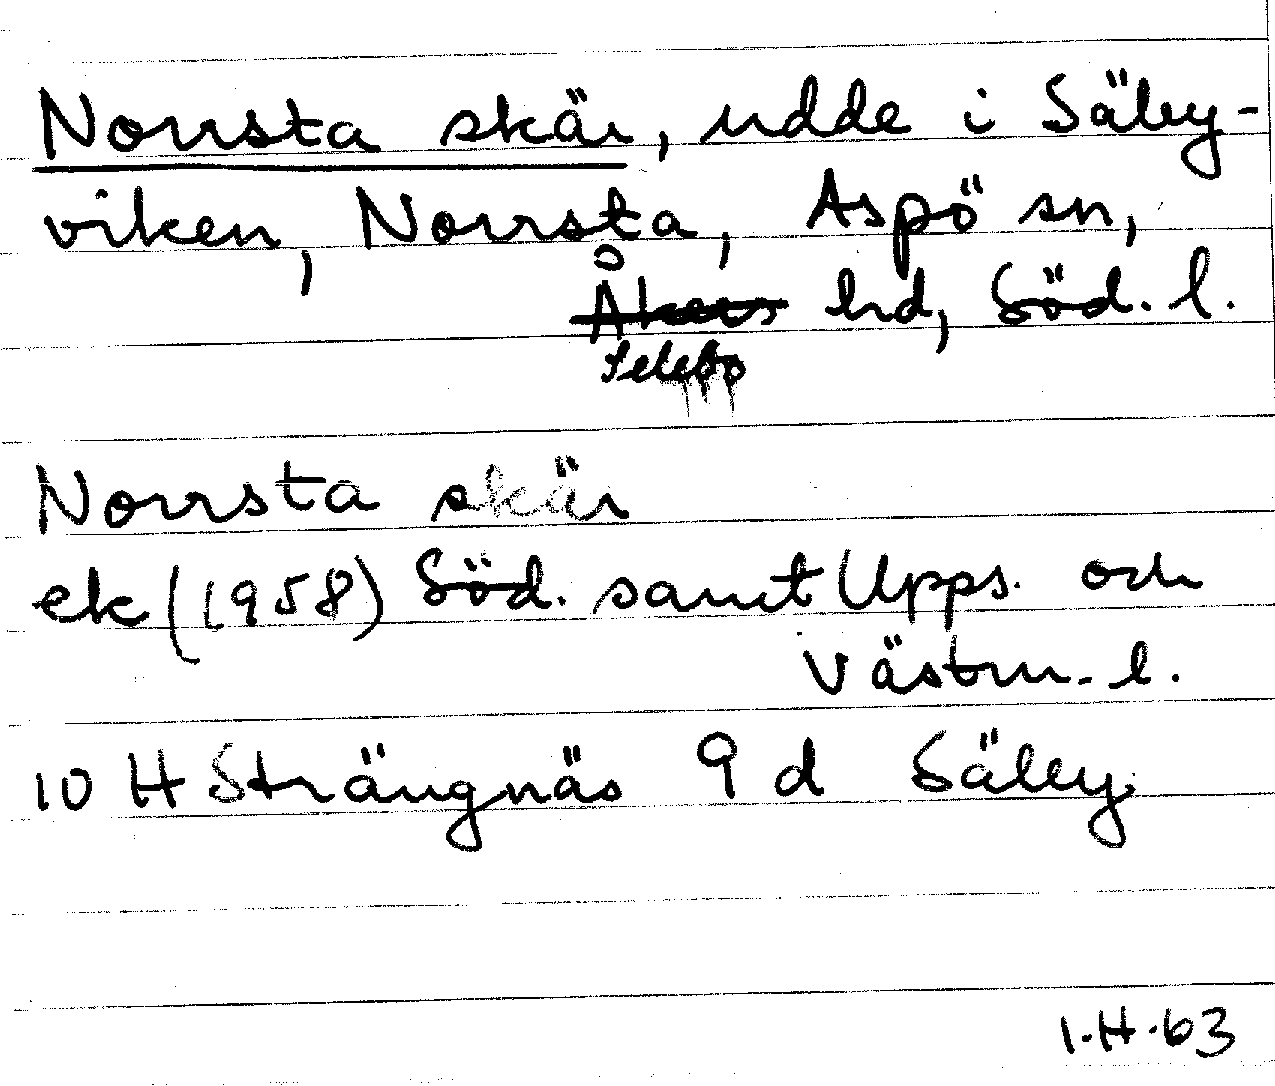 Norrsta skär, udde i Säby-
viken, Norrsta, Aspö sn,
Åkers hd, Söd. l.
Selebo
Norrsta skär
ek (1958) Söd. samt Upps. och
Västm. l.
10 H Strängnäs 9 d Säby
1.H.63